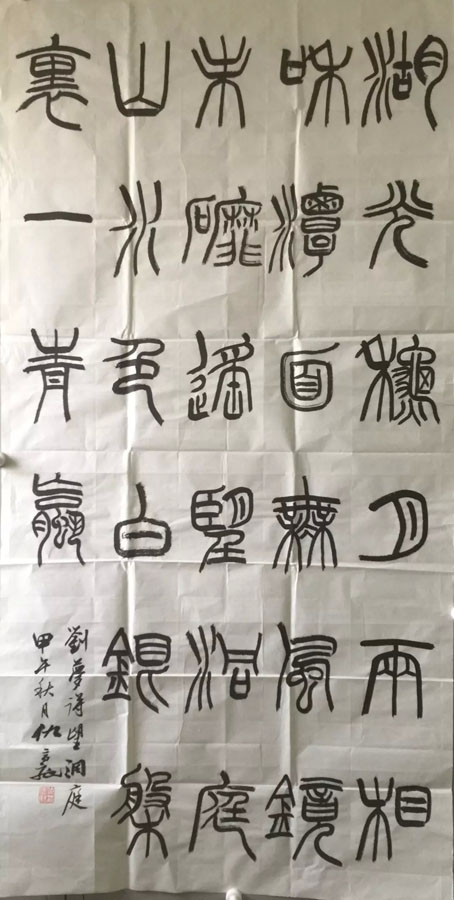 湖光龝月兩相
和潭面無風鏡
未磨遙望洞庭
山水色白銀盤
裏一青蠃
劉夢得望洞庭
甲午秋月